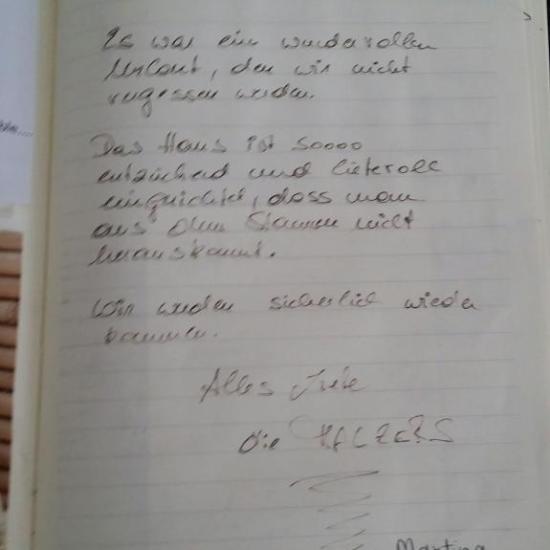 Es war ein wundervoller
Urlaub, den wir nicht
vergessen werden.
Das Haus ist soooo
entzückend und liebevoll
eingerichtet, dass man
aus dem Staunen nicht
herauskommt.
Wir werden sicherlich wieder
kommen.
Alles Liebe
die
Martina